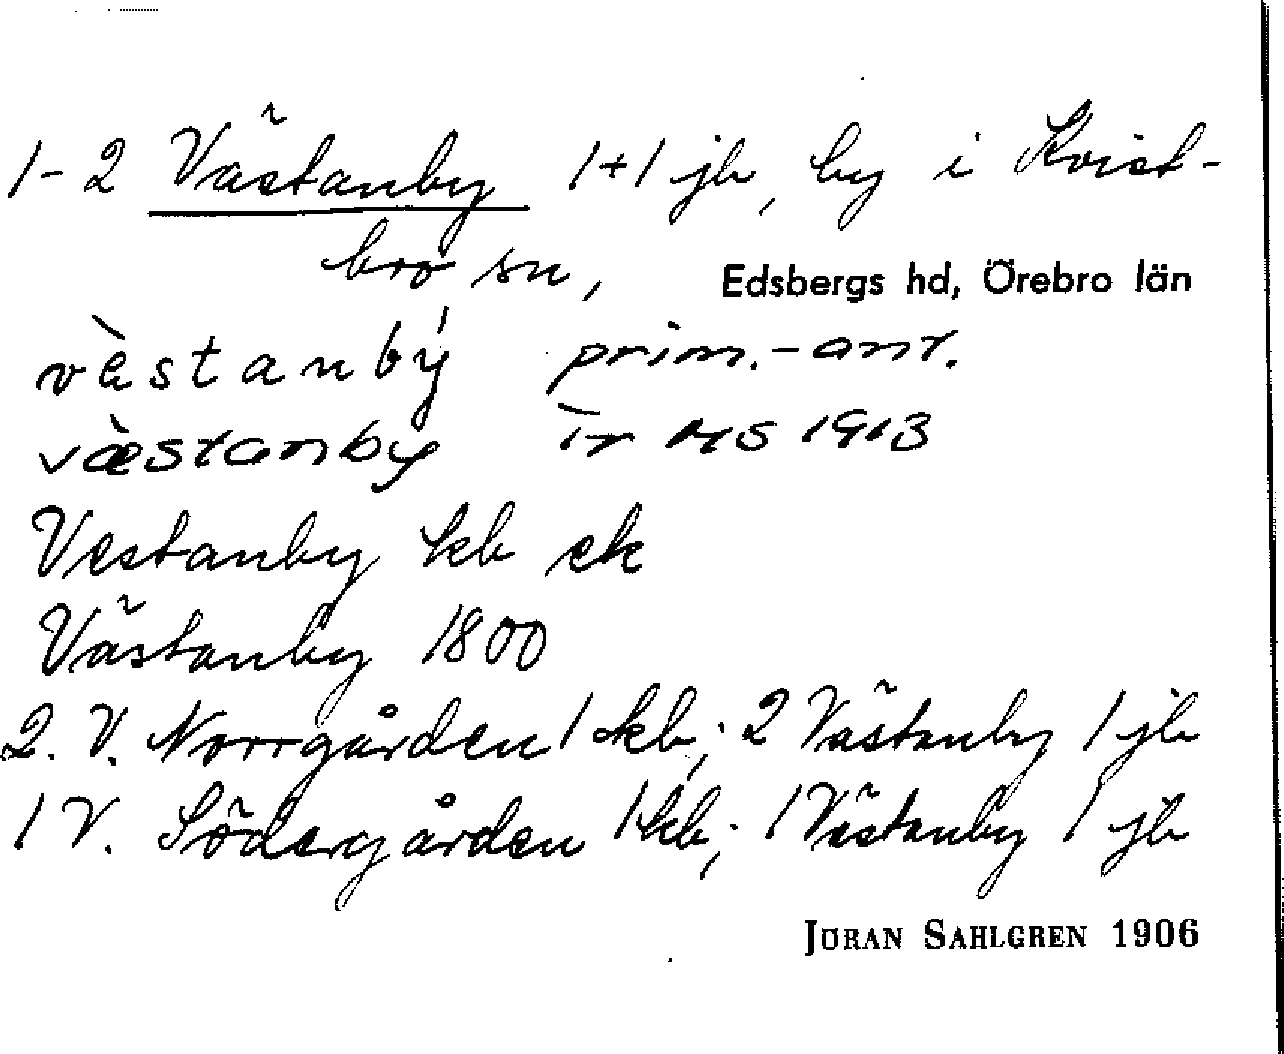 1-2 Västanby 1+1 jb, by i Kvist-
bro sn, Edsbergs hd, Örebro län
vàstanbý prim.-anr.
væ̀stanby ir MS 1913
Vestanby kb ek
Västanby 1800
2. V. Norrgården 1 kb; 2 Västanby 1 jb
1 V. Södergården 1 kb; 1 Västanby 1 jb
JÖRAN SAHLGREN 1906